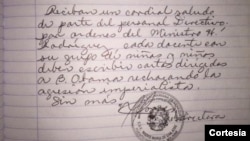 Reciban un cordial saludo
de parte del personal Directivo
por ordenes del Ministro H.
Rodríguez, cada docente con
su grupo de niñas y niños
deben escribir cartas dirigidas
a B. Obama rechazando la
agresión imperialista.
Sin más
Cortesía